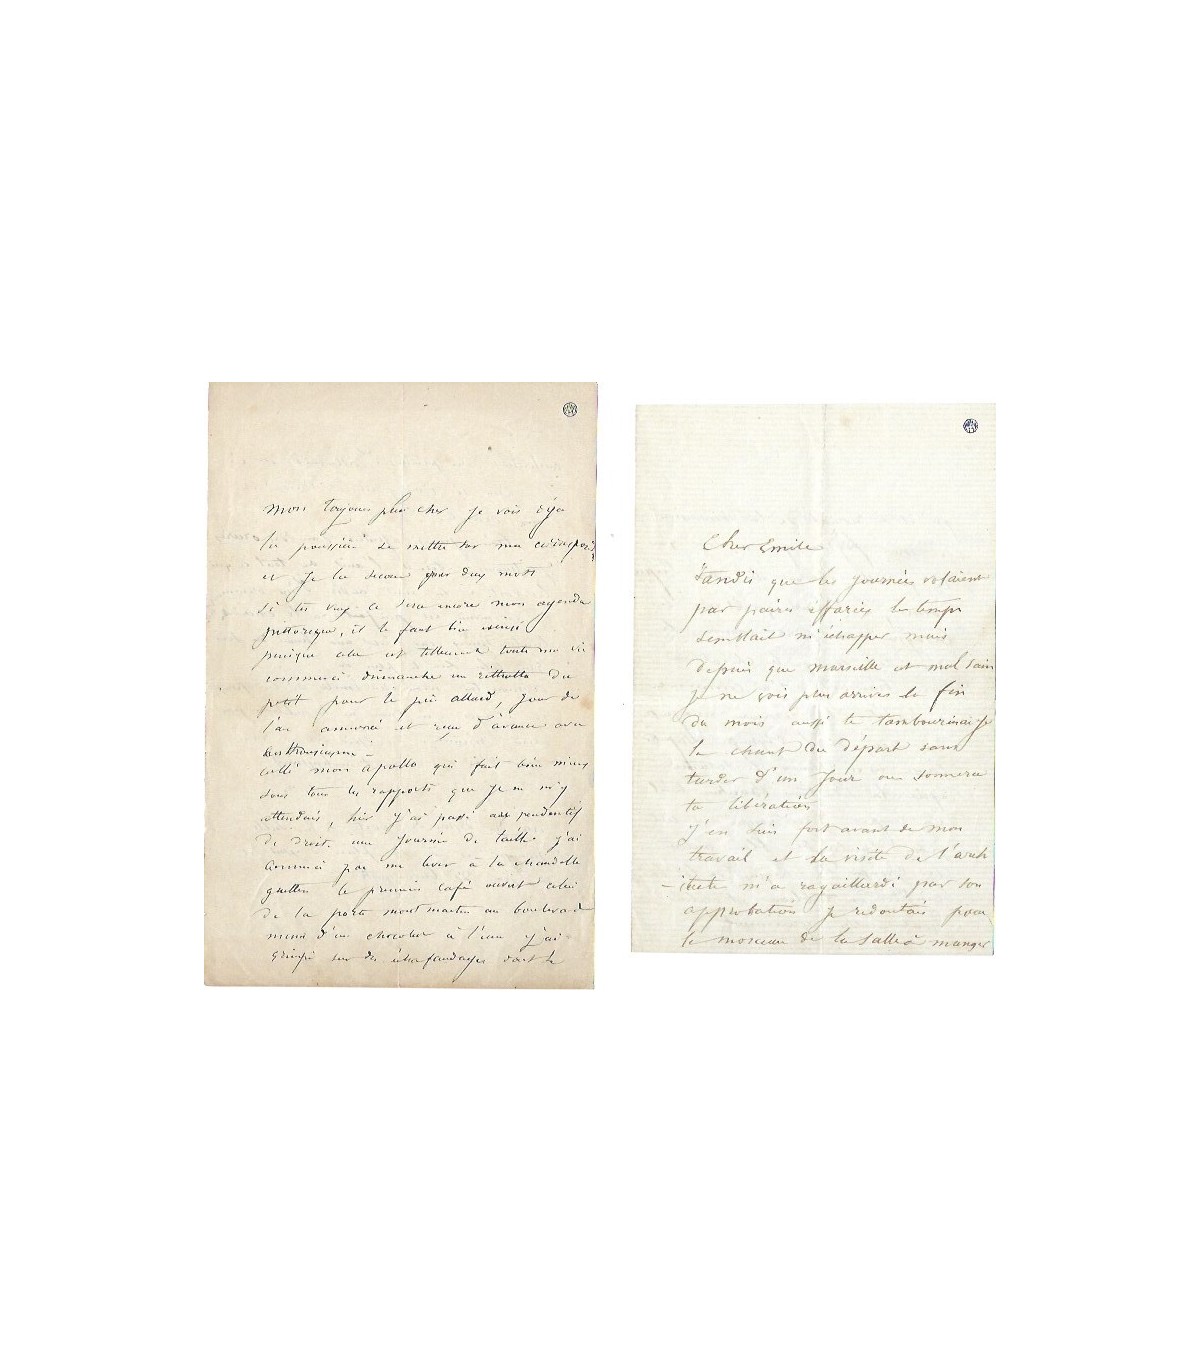 mon toujours plus cher je vois déja
la poussière se mettre sur ma
et je la secoue par deux mots
si tu veux ce sera encore mon agenda
pittoresque, il le faut bien ainsi
puisque cela est tellement toute ma vie
commencé dimanche un du
petit pour le père allard, jour de
l'an annoncé et reçu d'avance avec
collé mon apollo qui fait bien mieux
sous tous les rapports que je ne m'y
attendais, hier j'ai passé aux pendentifs
de droit. une journée de taille j'ai
commencé par me lever à la chandelle
guetter le premier café ouvert celui
de la porte montmartre au boulevard
muni d'un chocolat à l'eau j'ai
grimpé sur des échafaudages dont le
Cher Emile
Tandis que les journées volaient
par paires effarées le temps
semblait m'échapper mais
depuis que marseille est mal sain
je ne vois plus arriver la fin
du mois aussi je
le chant du départ sans
tarder d'un jour où sonnera
ta libération
J'en suis fort avant de mon
travail et la visite de l'arch
-itecte m'a ragaillardi par son
approbation je redoutais pour
le morceau de la salle à manger